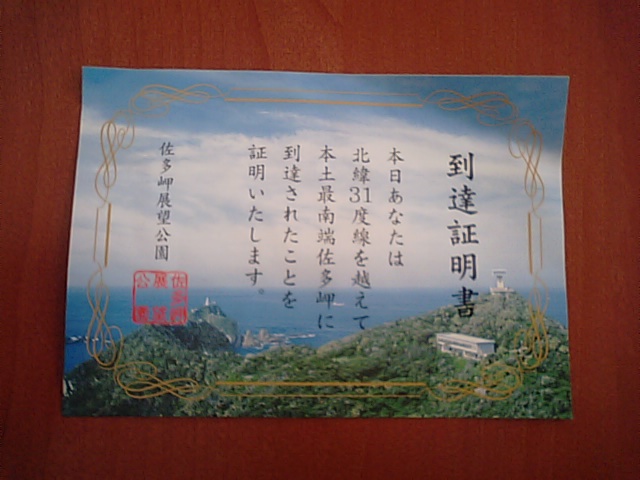 到達証明書
本日あなたは
北緯31度線を越えて
本土最南端佐多岬に
到達されたことを
証明いたします。
佐多岬展望公園
佐多岬
展望
公園